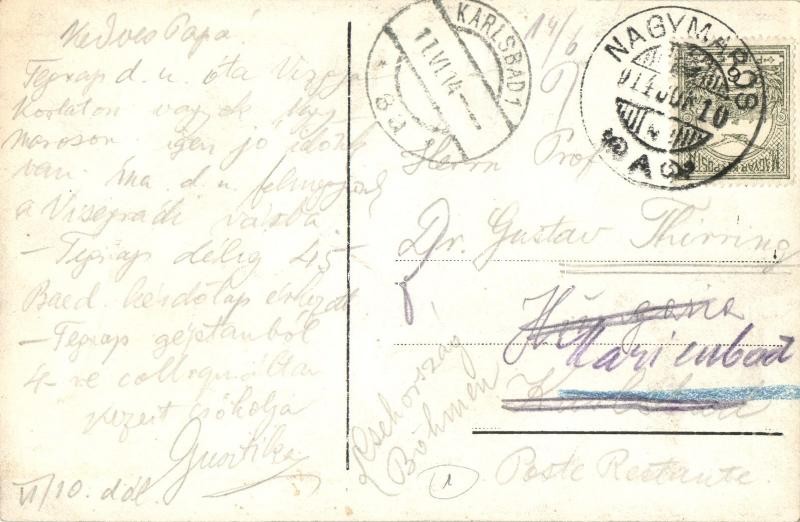 Kedves Papa!
Tegnap d. u. óta Vizpja
Korlaton vagyok Nagy
maroson igen jó időnk
van. Ma d. u. felmegyünk
a Visegrádi várba
— Tegnap délig 45
Baed. kérdőlap érkezett
— Tegnap géptanból
4-re colloquáltam
kezeit csókolja
Gusztika
VI/10. dél
KARLSBAD 1
11.VI.14
14/6
NAGYMAROS
914 JUN 10
MAGYAR KIR. POSTA
Herrn Prof
Dr. Gustav Thirring
Hungaria
Marienbad
Karlsbad
Csehország
Böhmen
1
Poste Restante.